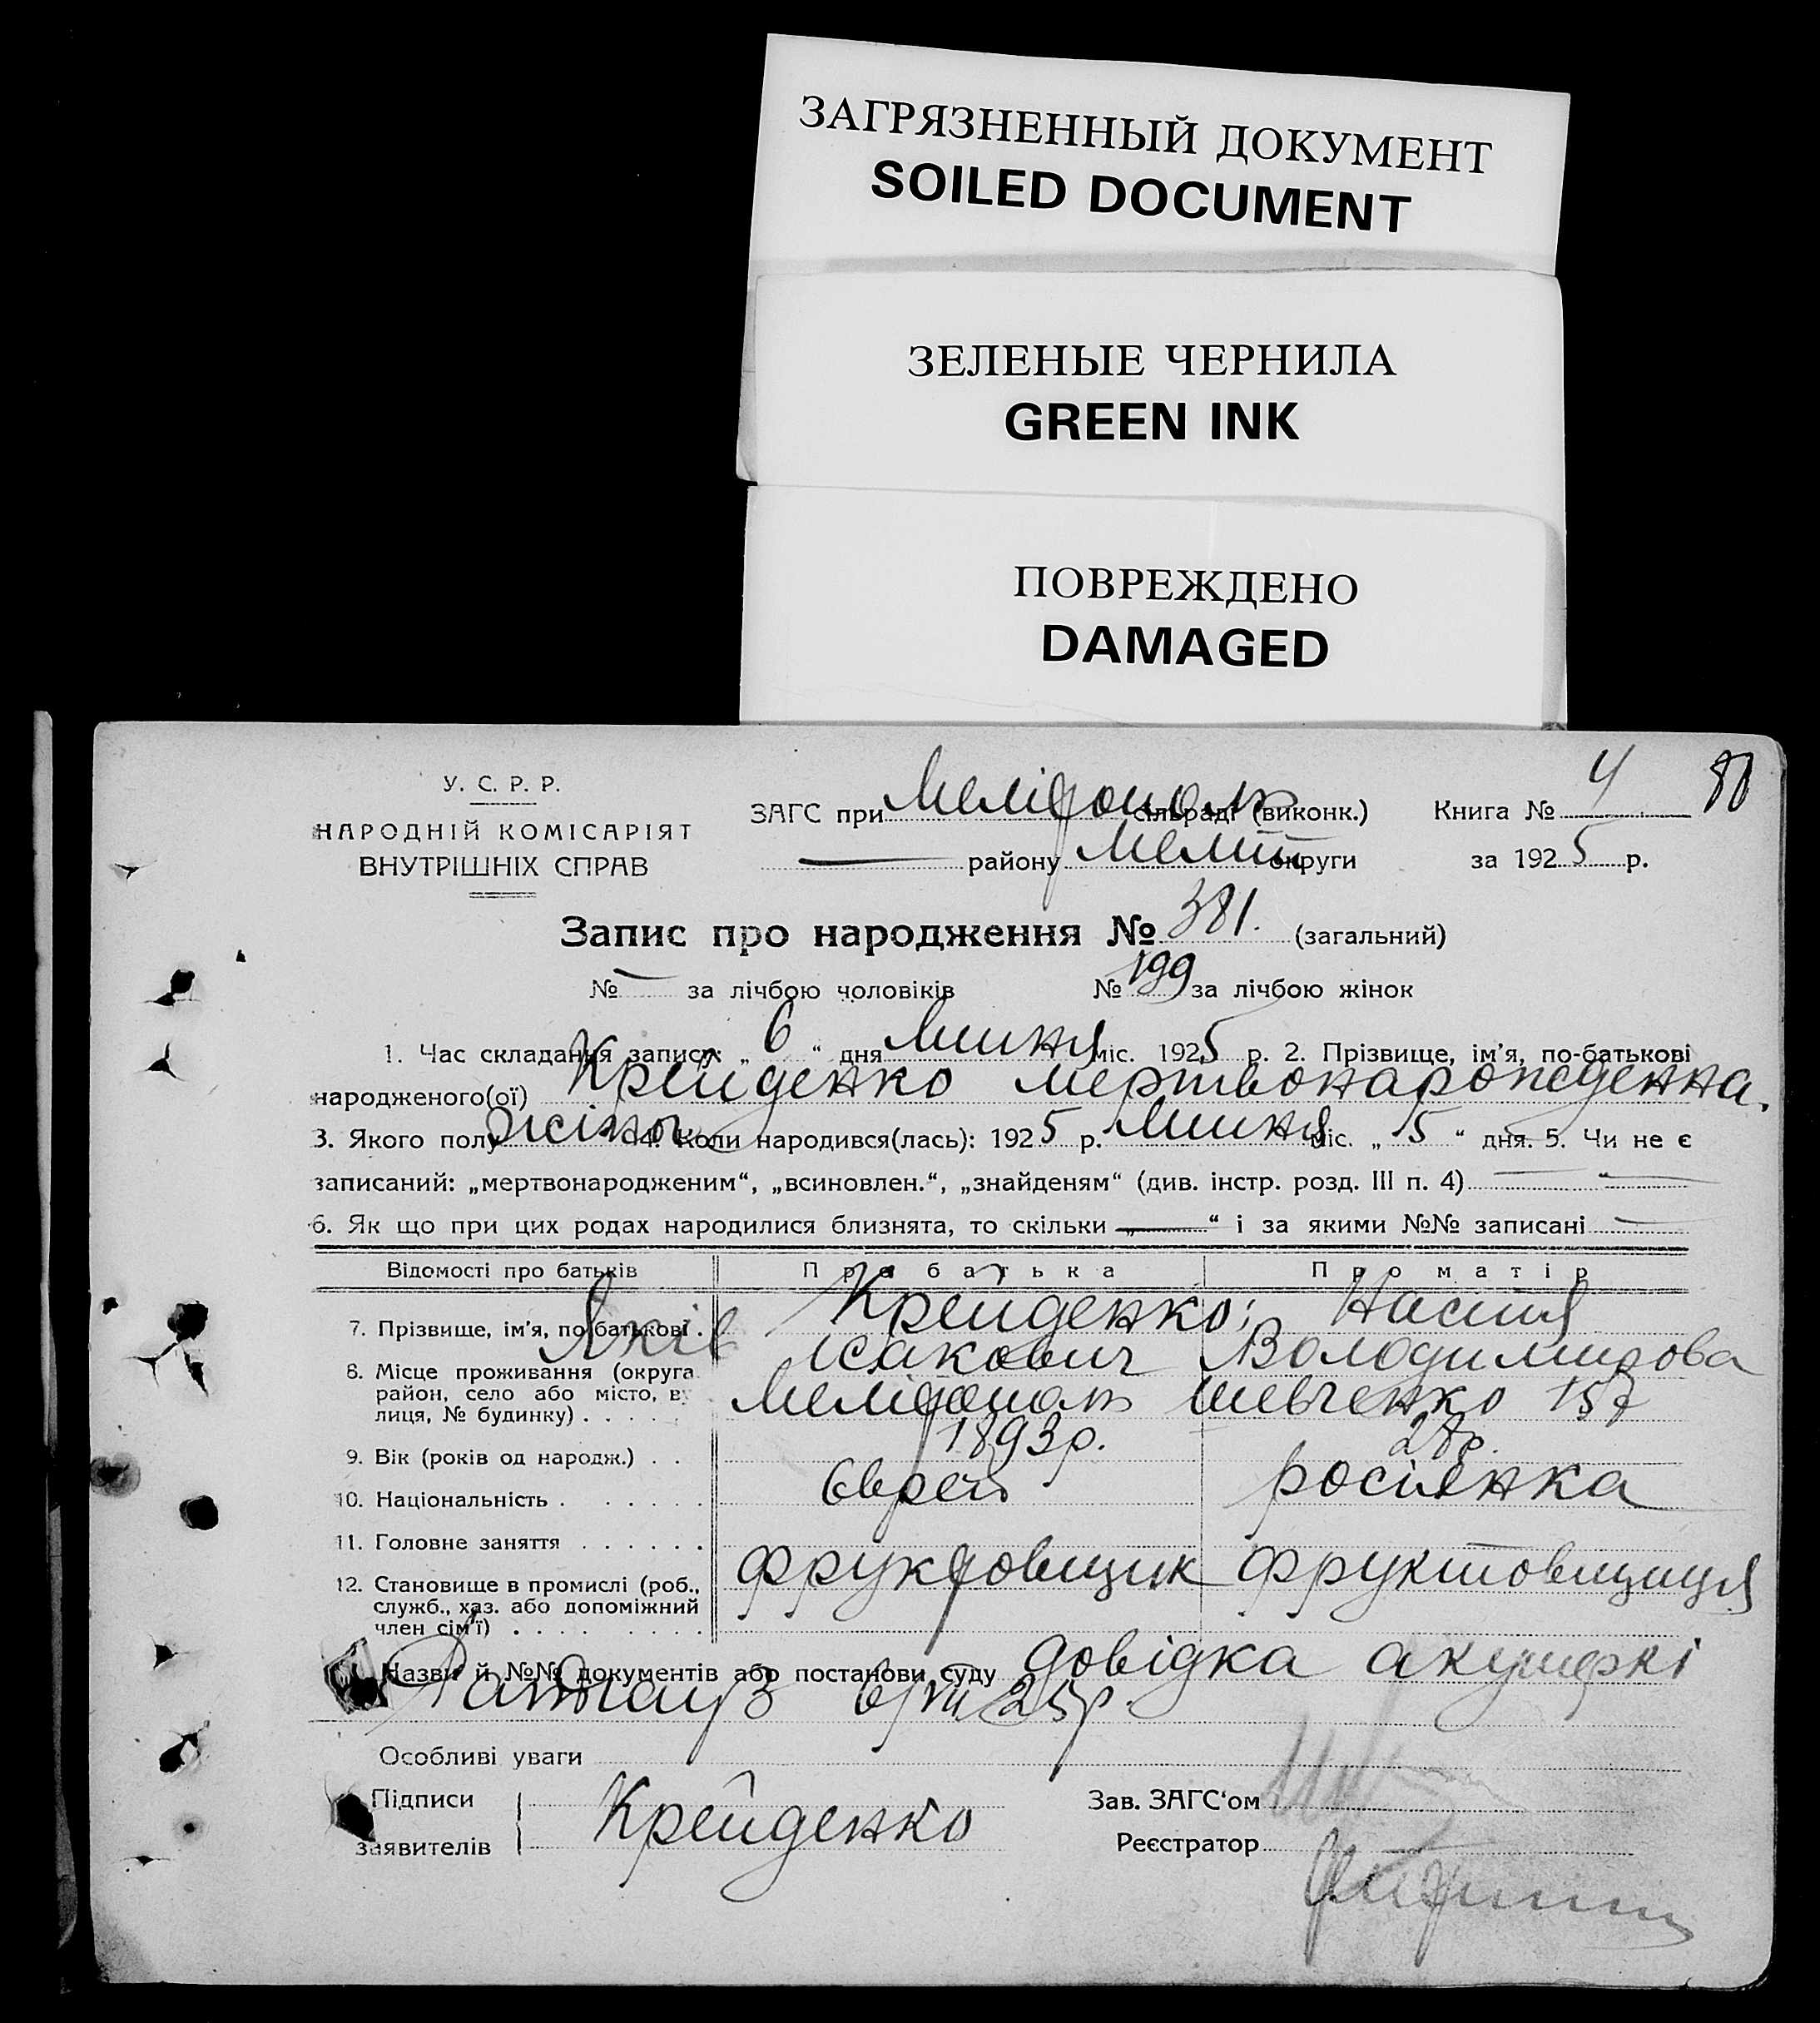 ЗАГРЯЗНЕННЫЙ ДОКУМЕНТ
SOILED DOCUMENT
ЗЕЛЕНЫЕ ЧЕРНИЛА
GREEN INK
ПОВРЕЖДЕНО
DAMAGED
У. С. Р. Р.
НАРОДНІЙ КОМІСАРІЯТ
ВНУТРІШНІХ СПРАВ
ЗАГС при Мелітополь сільраді (виконк.) Книга № 4 80
— району Меліт округи за 1925 р.
Запис про народження № 381. (загальний)
№ — за лічбою чоловіків № 199 за лічбою жінок
1. Час складання запису: „ 6 “ дня Липня міс. 1925 р. 2. Прізвище, ім'я, по-батькові
народженого(ої) Крейденко мертвонарожденна.
3. Якого полу жіноч 4. Коли народився(лась): 1925 р. Липня міс. „ 5 “ дня. 5. Чи не є
записаний: „мертвонародженим“, „всиновлен.“, „знайденям“ (див. інстр. розд. III п. 4) — “ —
6. Як що при цих родах народилися близнята, то скільки „ — “ і за якими №№ записані —
Відомості про батьків Про батька Про матір
7. Прізвище, ім'я, по батькові . Крейденко; Настя
Яків Ісакович Володимирова
8. Місце проживання (округа
район, село або місто, ву
лиця, № будинку) . . . . . Мелітополь Шевченко 157
9. Вік (років од народж.) . . 1893р. 28р.
10. Національність . . . . . . . Єврей росіянка
11. Головне заняття . . . . . .
12. Становище в промислі (роб., фруктовщик фруктовщиця
служб., хаз. або допоміжний
член сім'ї) . . . . . . . . .
Назви й №№ документів або постанови суду довідка акушеркі
6/VII 25р.
Особливі уваги
Підписи
заявителів Крейденко
Зав. ЗАГС‘ом
Реєстратор